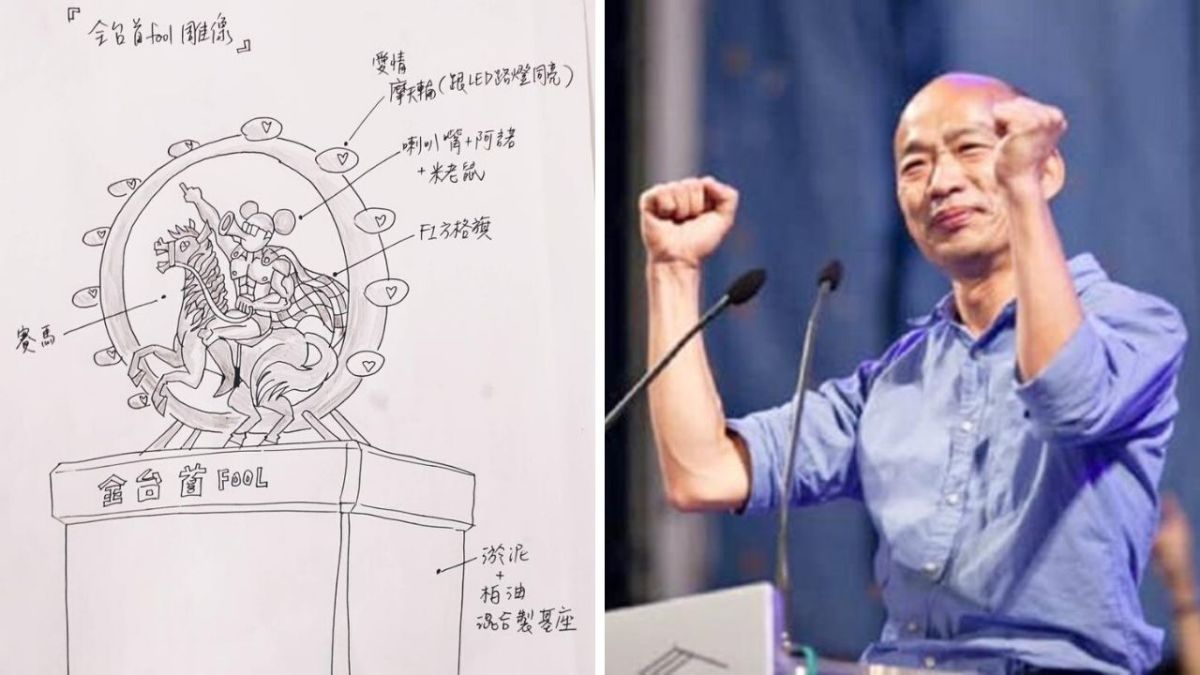 『全台首fool雕像』
愛情
摩天輪(跟LED路燈同亮)
喇叭嘴+阿諾
+米老鼠
F1方格旗
賽馬
全台首FOOL
淤泥
+
柏油
混合製基座